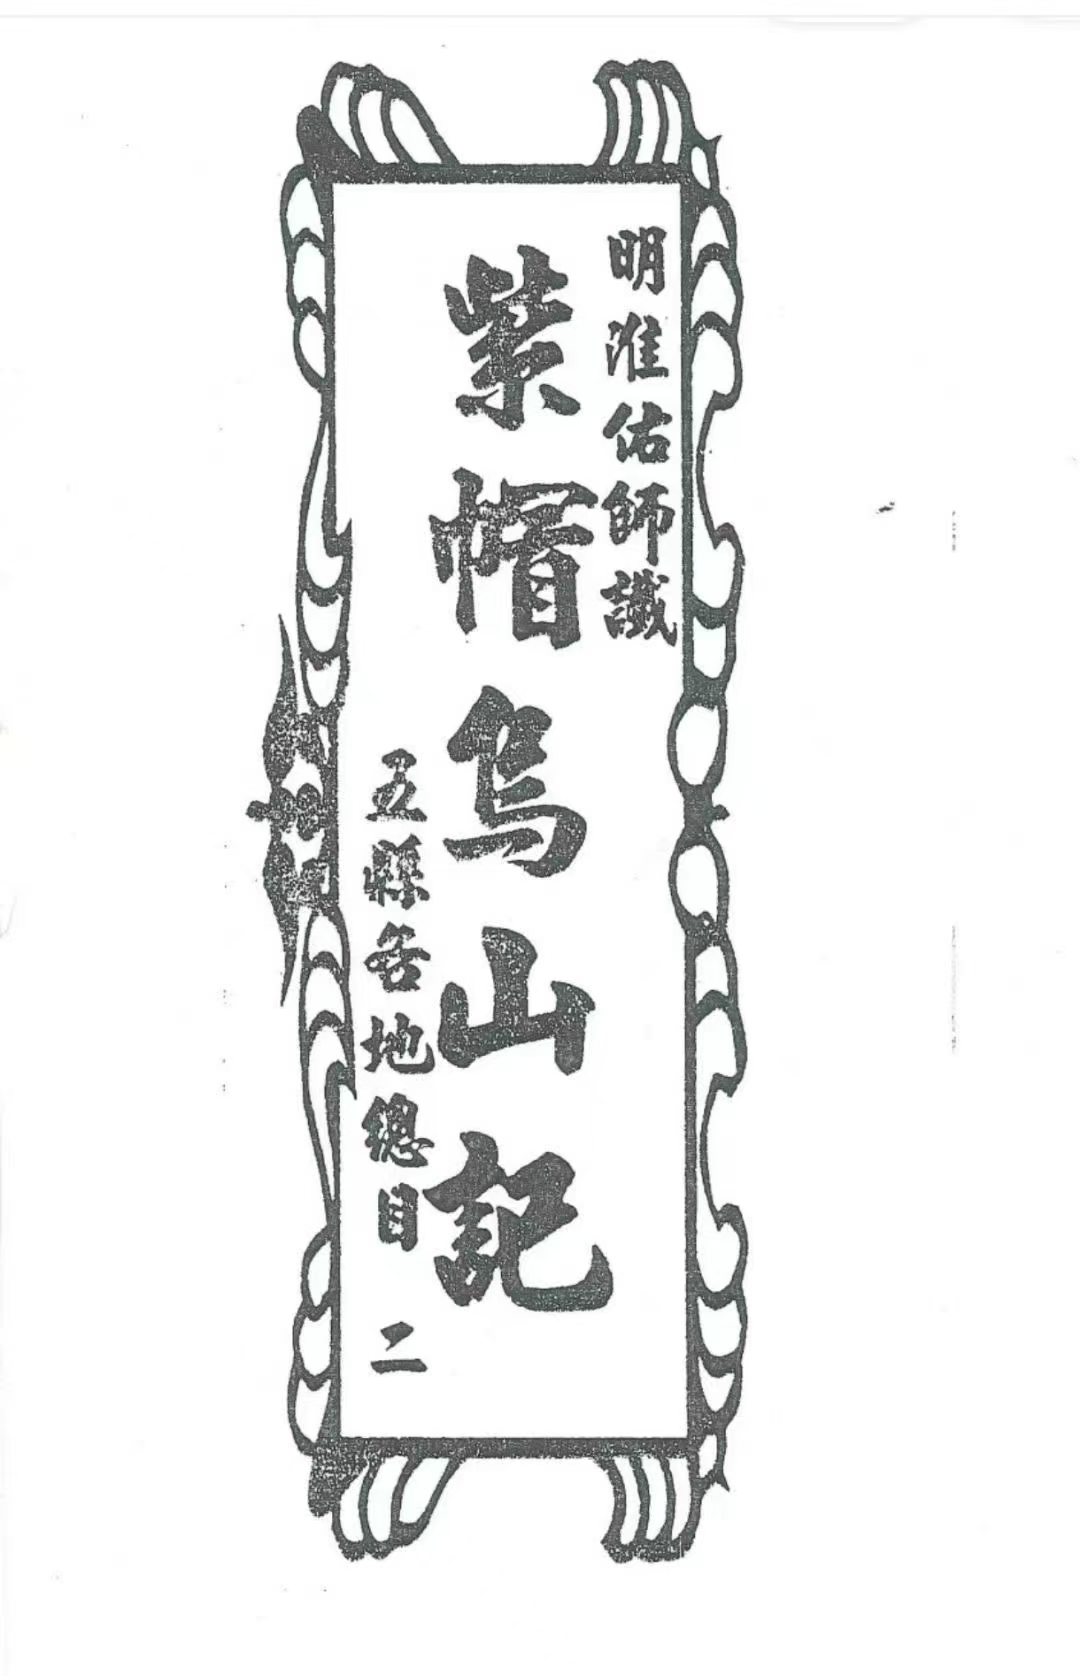 明淮佑師讖
紫帽烏山記
五縣各地總目 二